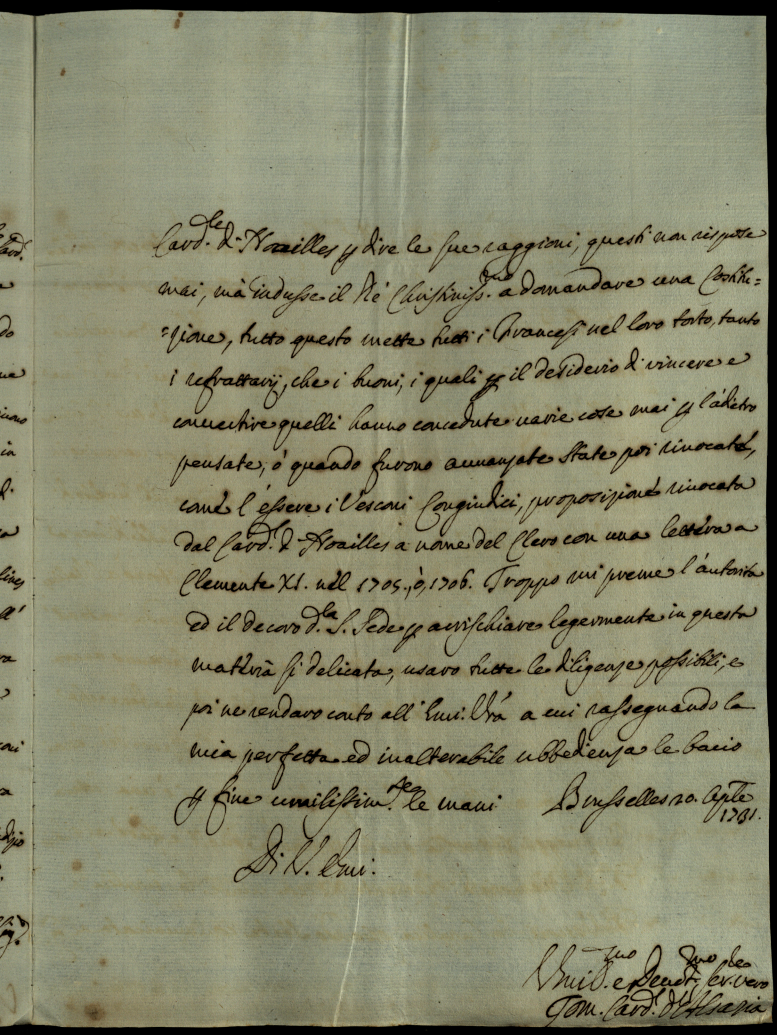 Card.le di Noailles p dire le sue raggioni, questi non rispose
mai, mà indusse il Rè Christianiss.mo a domandare una Costitu=
=zione, tutto questo mette tutti i Francesi nel loro torto, tanto
i refrattarij, che i buoni, i quali p il desiderio di vincere e
convertire quelli hanno concedute varie cose mai p l'adietro
pensate, ó quando furono avanzate state poi rivocate,
come l'éssere i Vescovi Congiudici, proposizione rivocata
dal Card.l di Noailles à nome del Clero con una lettera a
Clemente XI. nel 1705., ò, 1706. Troppo mi preme l'autorità
ed il decoro d.la S. Sede p arrischiare legermente in questa
materia si delicata, usarò tutte le diligenze possibili, e
poi ne rendarò conto all'Emi: Vrá a cui rassegnando la
mia perfetta ed inalterabile ubbedienza le bacio
p fine umilissim.te le mani Brusselles 20. Aple
1731.
Di V. Emi:
Umil.mo e Devot.mo Ser.re vero
Tom. Card.l d'Alsazia
Card.
do
in
di